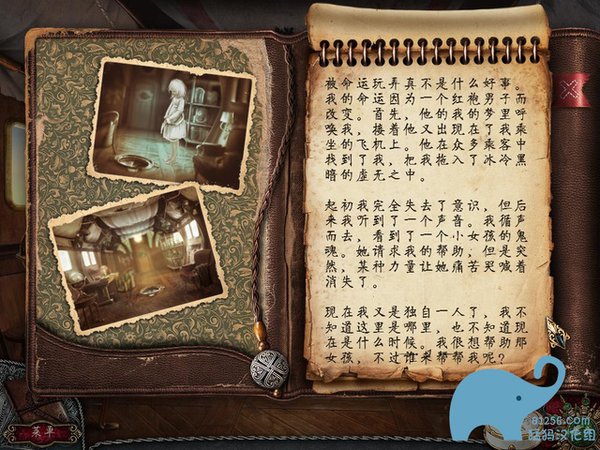 被命运玩弄真不是什么好事。
我的命运因为一个红袍男子而
改变。首先，他的我的梦里呼
唤我，接着他又出现在了我乘
坐的飞机上。他在众多乘客中
找到了我，把我拖入了冰冷黑
暗的虚无之中。
起初我完全失去了意识，但后
来我听到了一个声音。我循声
而去，看到了一个小女孩的鬼
魂。她请求我的帮助，但是突
然，某种力量让她痛苦哭喊着
消失了。
现在我又是独自一人了，我不
知道这里是哪里，也不知道现
在是什么时候。我很想帮助那
女孩，不过谁来帮帮我呢？
菜单
81256.com
猛犸汉化组